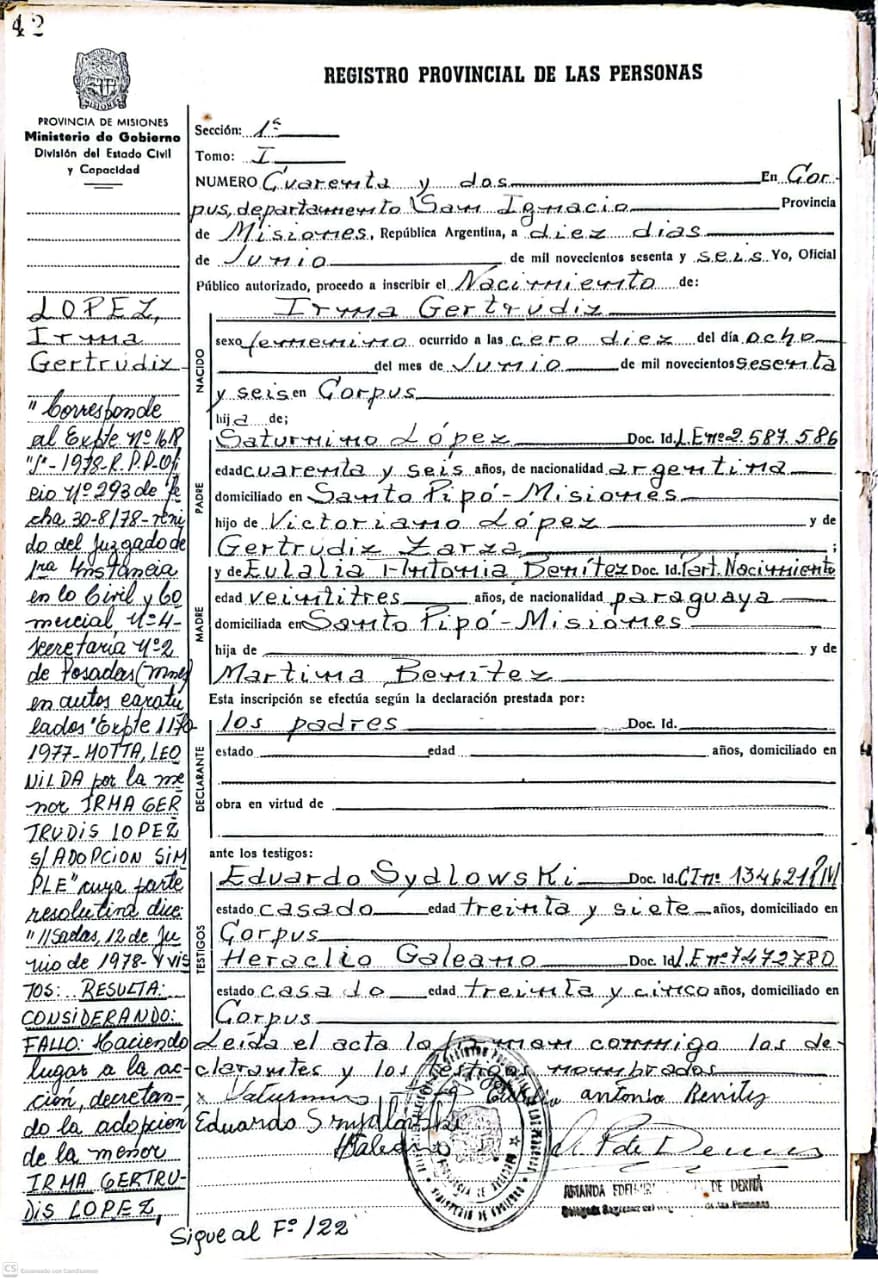 42
REGISTRO PROVINCIAL DE LAS PERSONAS
PROVINCIA DE MISIONES
Ministerio de Gobierno
División del Estado Civil
y Capacidad
LOPEZ,
Irma
Gertrudiz
"Corresponde
al Expte Nº 1618
"S"-1978-R.P.P-Ofi
cio Nº 293 de fe
cha 30-8/78- reni
do del Juzgado de
1ra Instancia
en lo Civil y Co
mercial Nº 4-
Secretaria Nº 2
de Posadas (Mnes)
en autos caratu
lados "Expte 1170-
1977- MOTTA, LEO
NILDA por la me
nor IRMA GER
TRUDIS LOPEZ
s/ADOPCION SIM
PLE" cuya parte
resolutiva dice:
"//Sadas, 12 de Ju
nio de 1978- Y vis
TOS: RESULTA:
CONSIDERANDO:
FALLO: Haciendo
lugar a la ac-
ción, decretan-
do la adopcion
de la menor
IRMA GERTRU-
DIS LOPEZ,
Sigue al Fº 122
Sección: 1ª
Tomo: I
NUMERO Cuarenta y dos En Cor-
pus, departamento San Ignacio Provincia
de Misiones, República Argentina, a diez dias
de Junio de mil novecientos sesenta y seis Yo, Oficial
Público autorizado, procedo a inscribir el Nacimiento de:
Irma Gertrudiz
NACIDO
sexo femenino ocurrido a las cero diez del día ocho
del mes de Junio de mil novecientos sesenta
y seis en Corpus
hija de;
PADRE
Saturnino López Doc. Id. L.E nº 2.587.586
edad cuarenta y seis años, de nacionalidad argentina
domiciliado en Santo Pipó-Misiones
hijo de Victoriano López y de
Gertrudiz Zarza ;
MADRE
y de Eulalia Antonia Benítez Doc. Id. Part. Nacimiento
edad veintitres años, de nacionalidad paraguaya
domiciliada en Santo Pipó-Misiones
hija de y de
Martina Benítez
Esta inscripción se efectúa según la declaración prestada por:
DECLARANTE
los padres Doc. Id.
estado edad años, domiciliado en
obra en virtud de
ante los testigos:
TESTIGOS
Eduardo Sydlowski Doc. Id. CI nº 134621
estado casado edad treinta y siete años, domiciliado en
Corpus
Heraclio Galeano Doc. Id. L.E nº 7472780
estado casado edad treinta y cinco años, domiciliado en
Corpus
Leída el acta la firman conmigo los de-
clarantes y los testigos nombrados
x antonia Benitez
Eduardo
Galeano
AMANDA DE
CS Escaneado con CamScanner